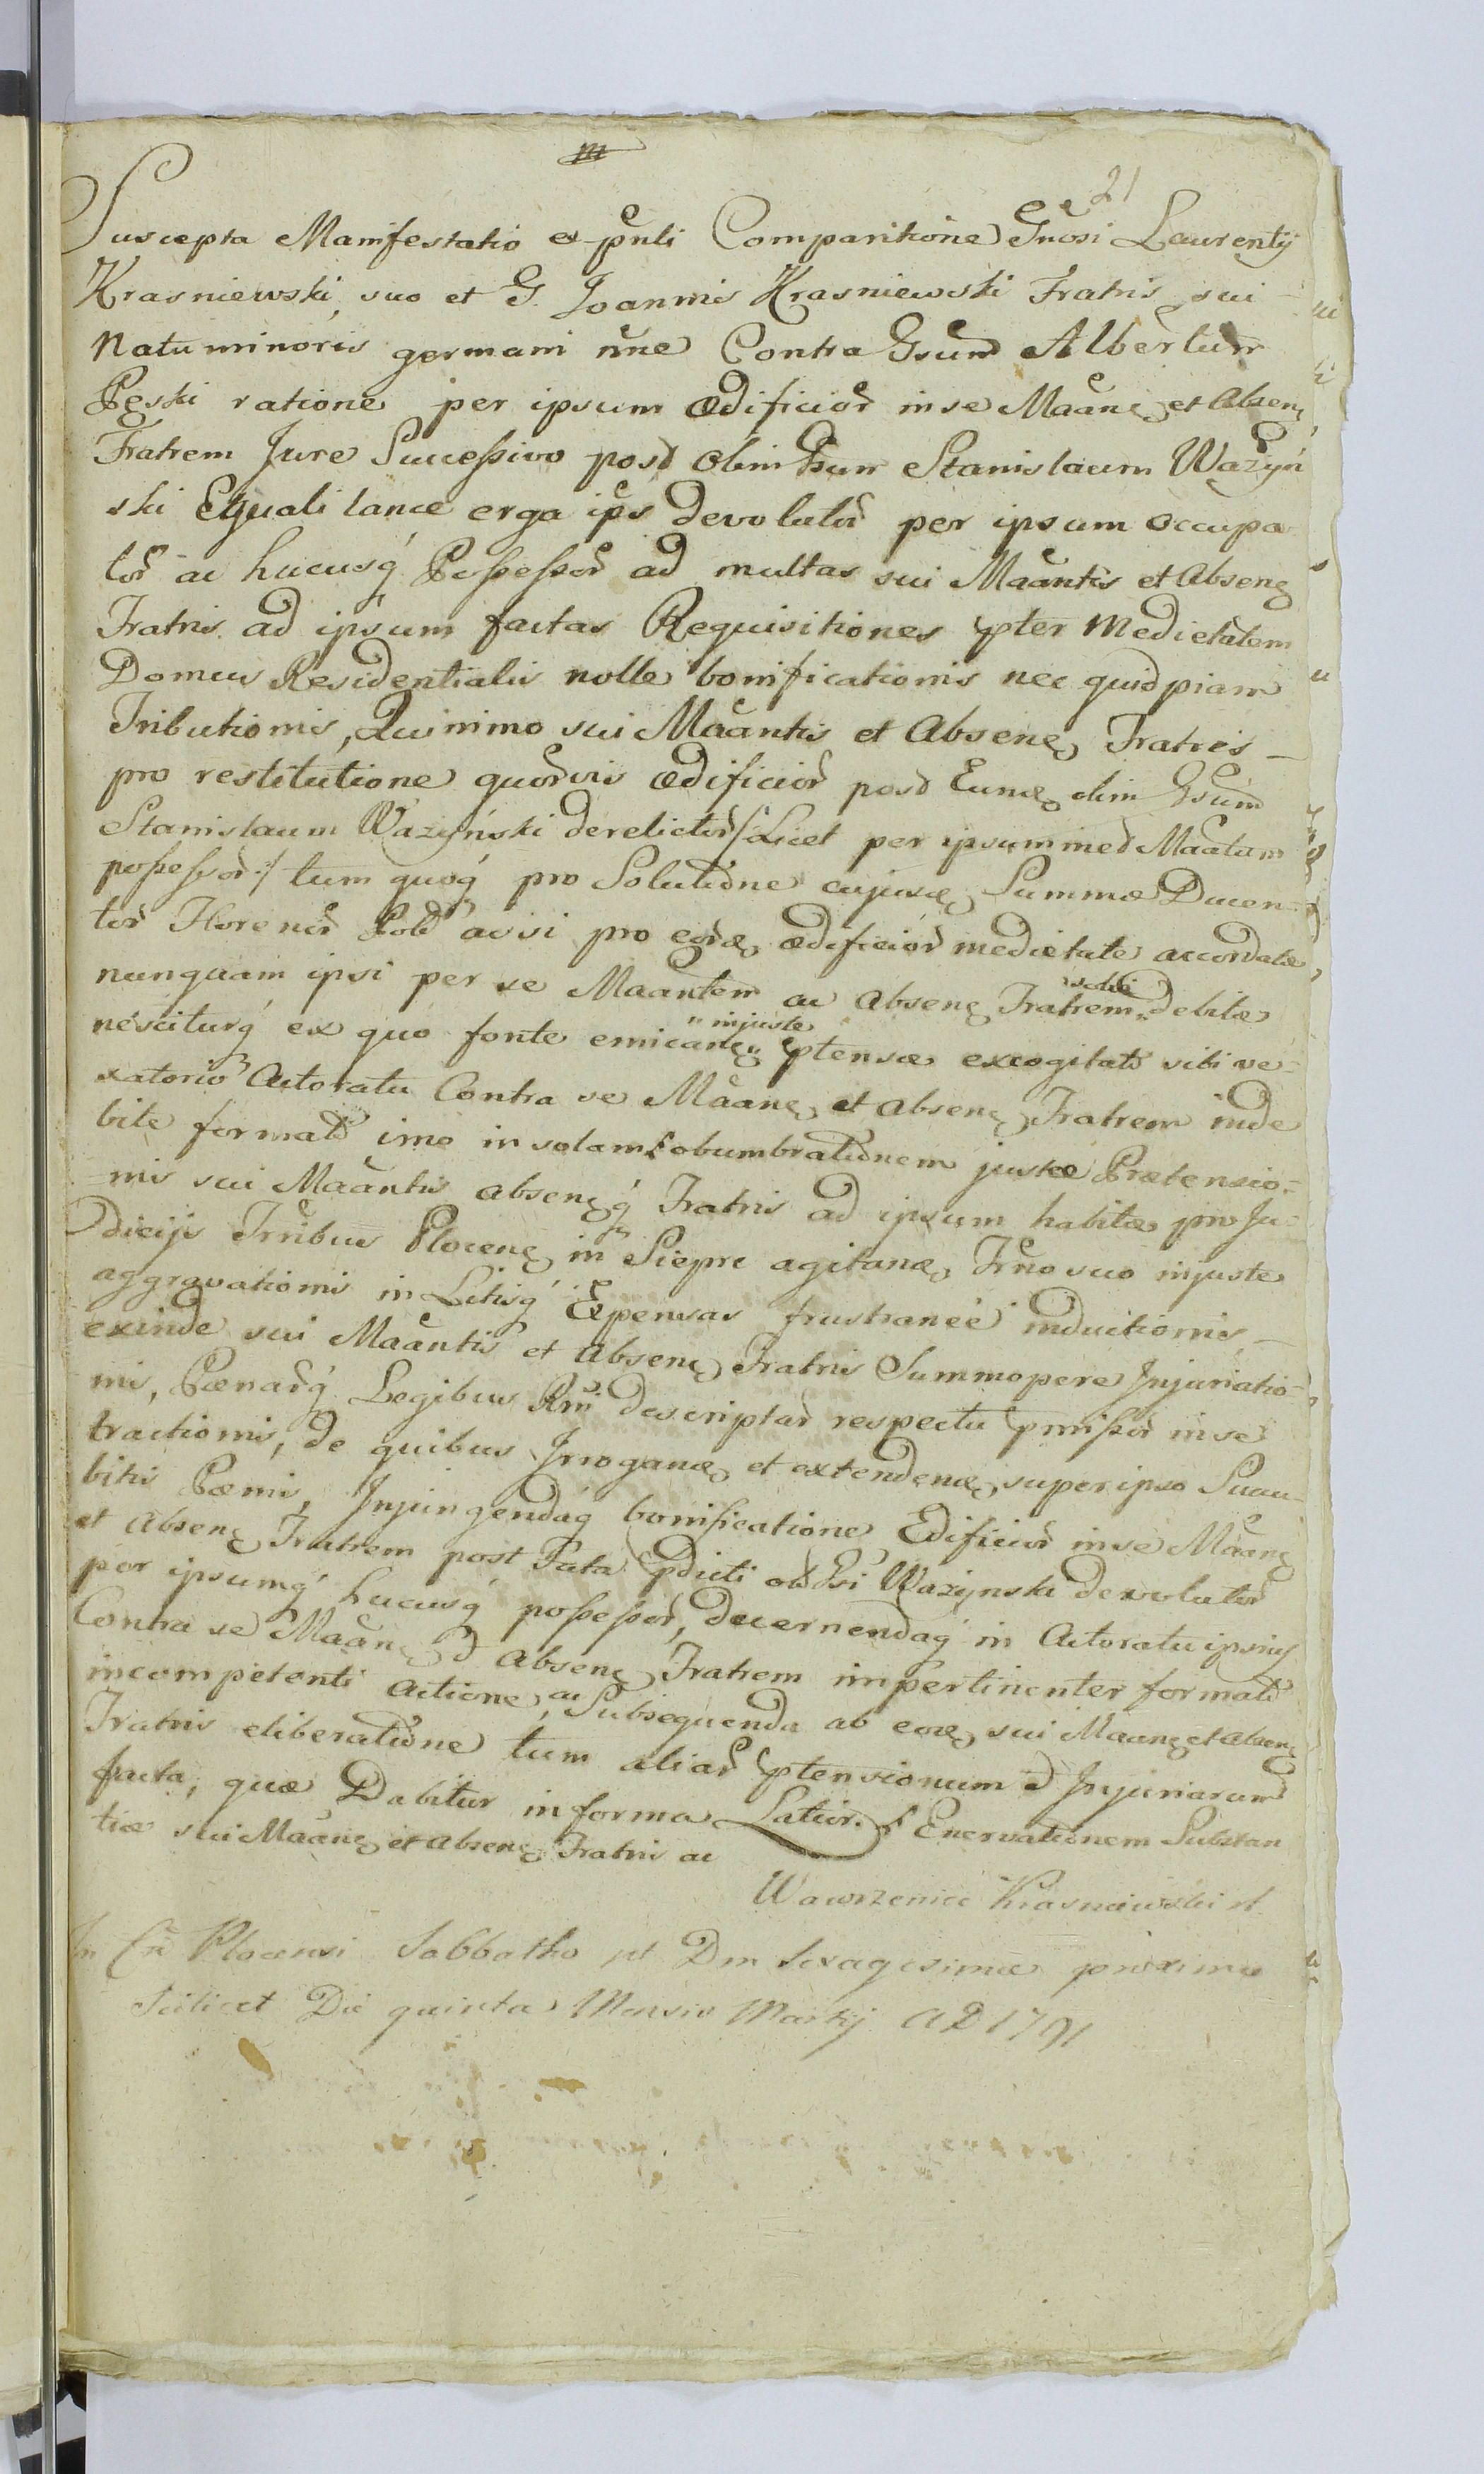 m
21
Suscepta Manifestatio ex pñli Comparitione Gñosi Laurentij
Krasniewski, suo et G. Joannis Krasniewski Fratris sui –
Natu minoris germani ñne Contra Gsum Albertum
Pęski ratione per ipsum Ædificior̃ in se Maãnę et Absenę
Fratrem Jure Successivo post olim Gsum Stanislaum Ważyń
ski Equali lance erga ip̃s devolutor̃ per ipsum occupa
tor̃ ac hucusq́ Possessor̃ ad multas sui Maãntis et Absenę
Fratris ad ipsum factas Requisitiones p̃ter Medietatem
Domus Residentialis nolle bonificationis nec quidpiam
Tributionis, Quinimo sui Maãntis et Absenę Fratris –
pro restitutione quor̃vis Ædificior̃ post Eunę olim Gsum
Stanislaum Ważyński derelictor̃ /: Licet per ipsummet Maãtum
possessor̃ :/ tum quoq́ pro Solutione cujusę Summæ Ducen-
tor̃ Florenor̃ Pol̃ ac si pro eorę ædificior̃ medietate accordatæ
nunquam ipsi per se Maãntem ac Absenę Fratrem debitæ
"injuste
nesciturq́ ex quo fonte emicanę" p̃tensæ excogitato sibi ve-
xatorio Actoratu Contra se Maãnę et Absenę Fratrem inde
bite formato imo in solam obumbrationem justæ Prætensio-
nis sui Maãntis absenęq́ Fratris ad ipsum habitæ pro Ju-
dicijs Trr̃ibus Plocenę in Sieprc agitanę, Tr̃no suo injuste
aggravationis in Litisq́ Expensas frustraneé inductionis –
exinde sui Maãntis et Absenę Fratris Summopere Injuriatio-
nis, Pænar̃q́ Legibus Rñi descriptar̃ respectu p̃missor̃ in se
tractionis, de quibus Irroganę et extendenę super ipso Succu-
bitis Pænis, Injungendaq́ bonificatione Ædificior̃ in se Maãnę
et Absenę Fratrem post Fata p̃dicti ol̃ Gsi Ważynski devolutor̃
per ipsumq́ hucusq́ possessor̃, decernendaq́ in Actoratu ipsius
Contra se Maãnę et Absenę Fratrem impertinenter formato
incompetenti actione, ac Subsequenda ab eorę sui Maãnę et Absenę
Fratris eliberatione tum aliar̃ p̃tensionum et Injuriarum
facta, quæ Dabitur in forma Latior. Enervationem Substan
tiæ sui Maãnę et Absenę Fratris ac
Wawrzeniec Krasniewski
In Cñ Plocensi Sabbatho Dm Sexagesimæ proximo
Scilicet Die quinta Mensis Martij AD 1791